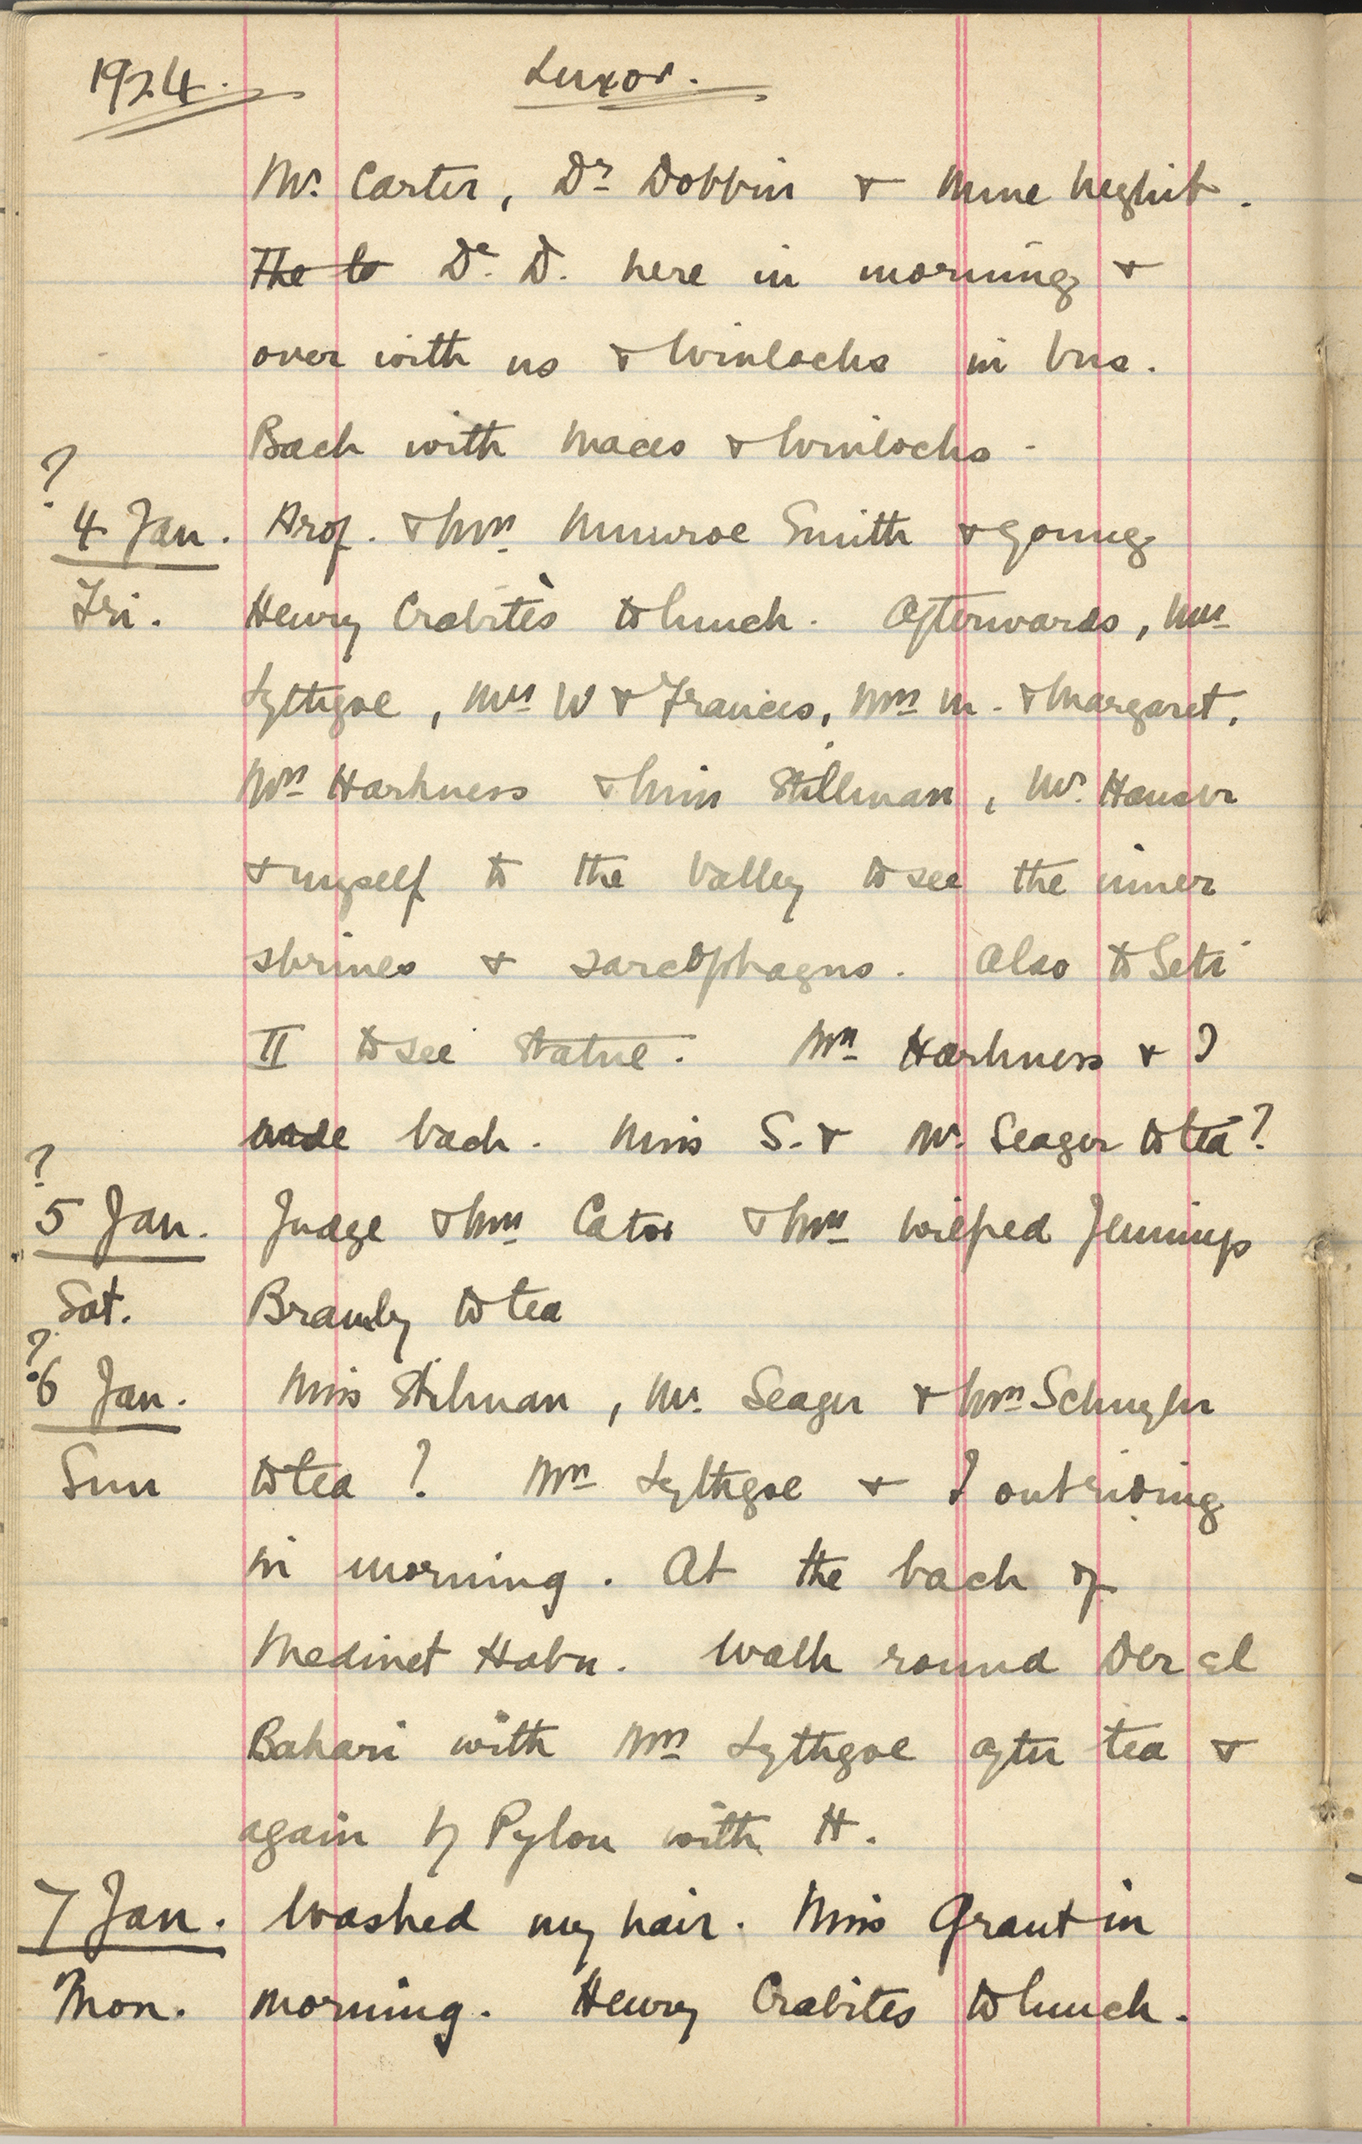 1924.
Luxor.
Mr. Carter, Dr Dobbin & Mme Neghib.
The to Dr. D. here in morning &
over with us & Winlocks in bus.
Back with Maces & Winlocks -
?
4 Jan. Prof. & Mrs. Munroe Smith & young
Fri. Henry Crabitès to lunch. Afterwards, Mrs
Lythgoe, Mrs W & Frances, Mrs M. & Margaret.
Mrs Harkness & Miss Stillman, Mr. Hauser
& myself to the Valley to see the inner
shrines & sarcophagus. Also to Seti
II to see statue. Mrs Harkness & ?
rode back. Miss S. & Mr. Seager to tea?
?
5 Jan. Judge & Mrs Cator & Mrs Wilfred Jennings
Sat. Bramly to tea
?
6 Jan. Miss Stillman, Mr. Seager & Mrs Schuyler
Sun to tea? Mrs Lythgoe & ? out riding
in morning. At the back of
Medinet Habu. Walk round Der el
Bahari with Mrs Lythgoe after tea &
again by Pylon with H.
7 Jan. Washed my hair. Miss Grant in
Mon. morning. Henry Crabites to lunch.